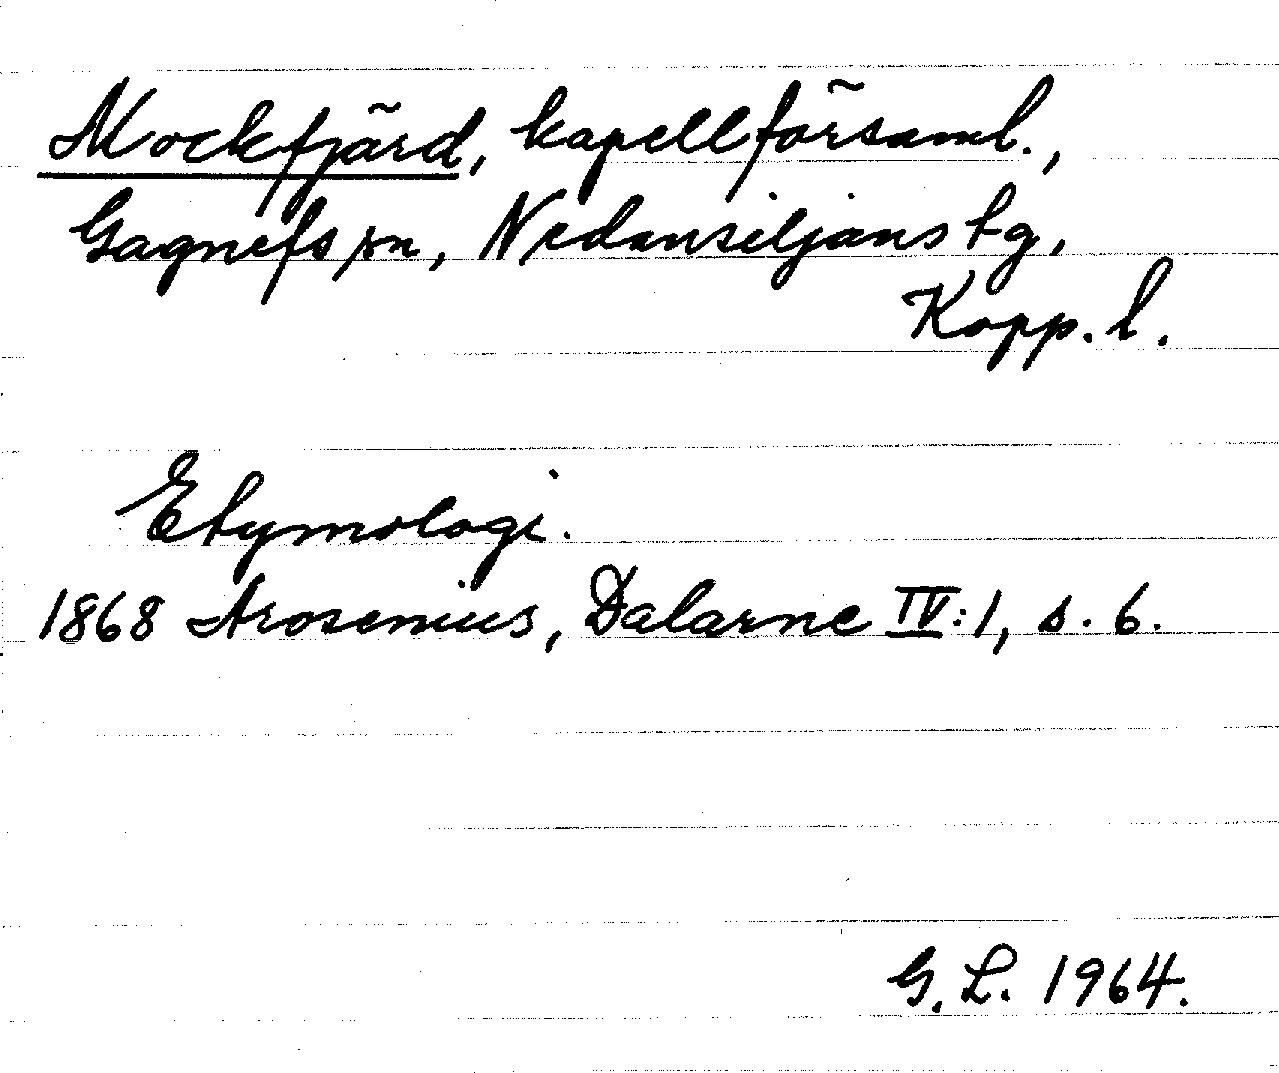 Mockfjärd, kapellförsaml.,
Gagnefs sn, Nedansiljans tg,
Kopp. l.
Etymologi.
1868 Arosenius, Dalarne IV:1, s. 6.
G. L. 1964.